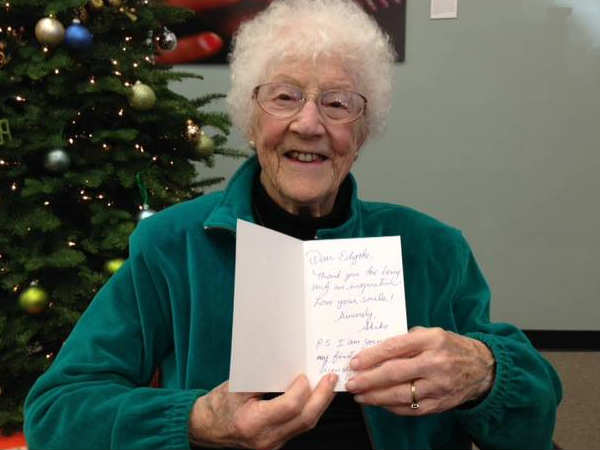 Dear Edythe,
Thank you for being
such an inspiration
Love your smile!
Sincerely,
P.S. I am
my